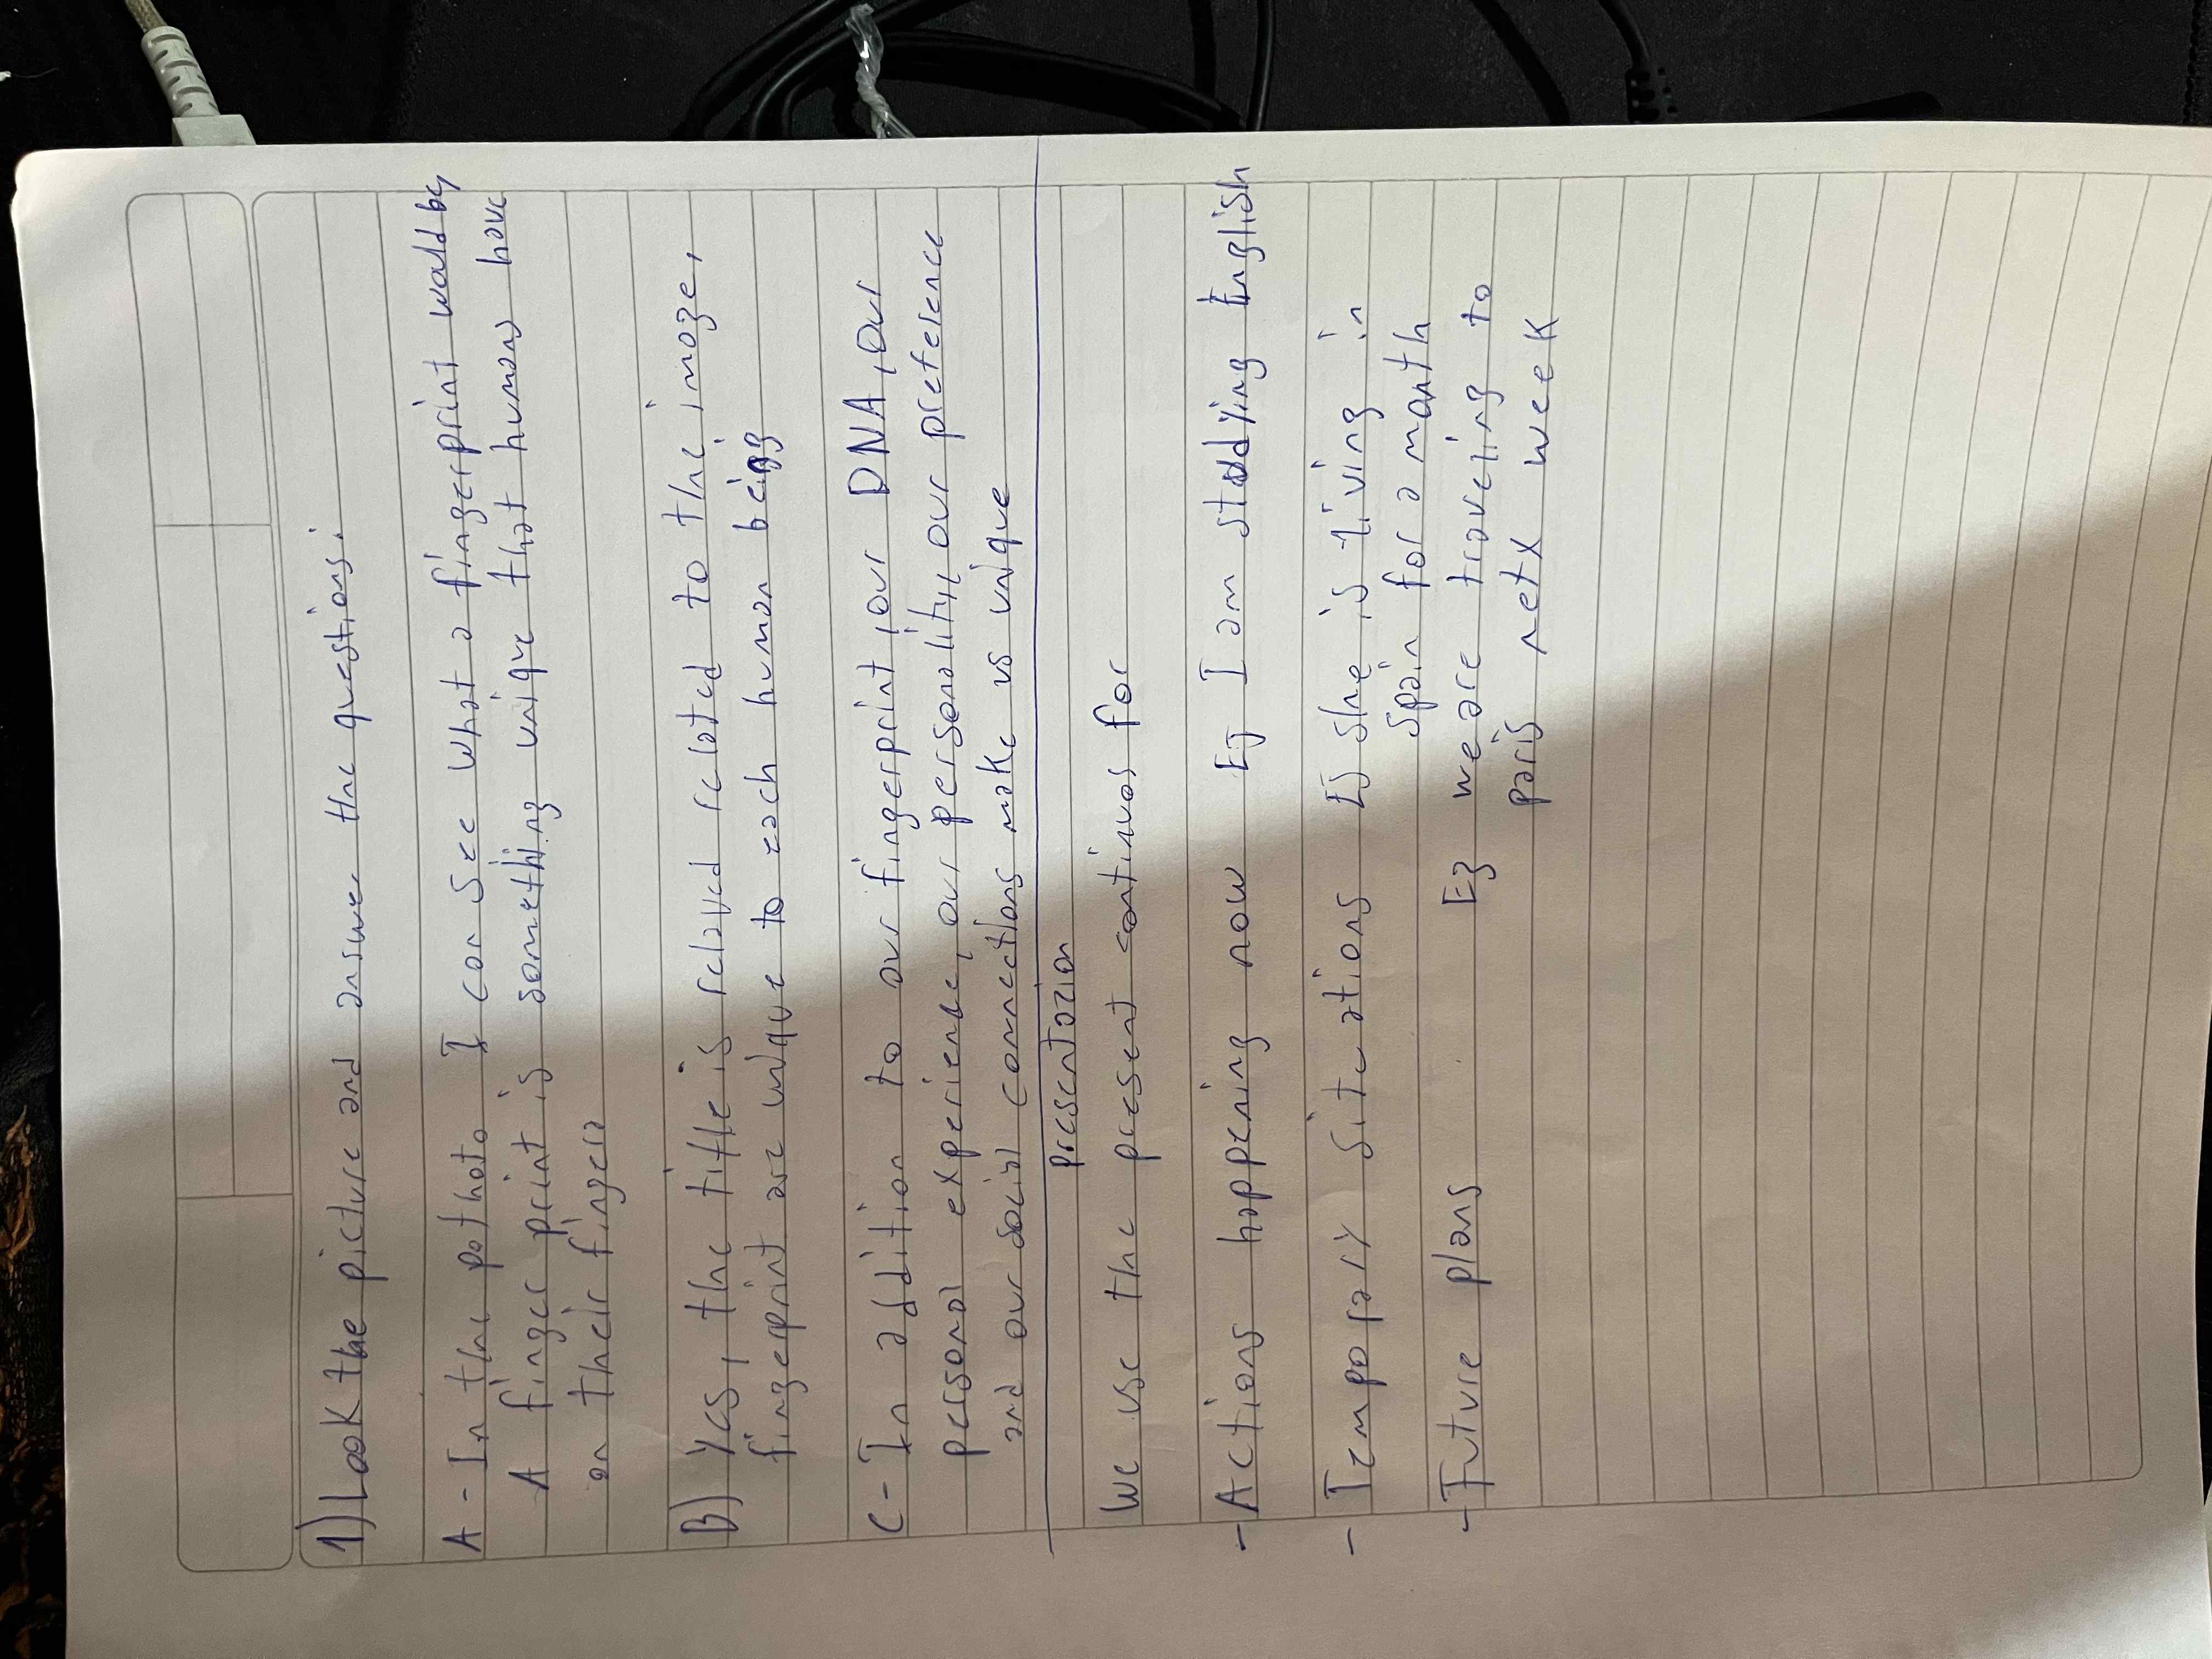 1) Look the picture and answer the questions:
A - In the pothoto I can see what a fingerprint would by
A finger print is something unique that humans have
on their fingers
B) Yes, the tittle is relaved related to the image,
fingerprint are unique to each human being
C - In addition to our fingerprint, our DNA, our
personal experience, our personality, our preference
and our social connections make us unique
presentazion
We use the present continuos for
- Actions happening now Ej I am studying English
- Temporary Situations Ej she is living in
Spain for a month
- Future plans Eg we are traveling to
paris netx week